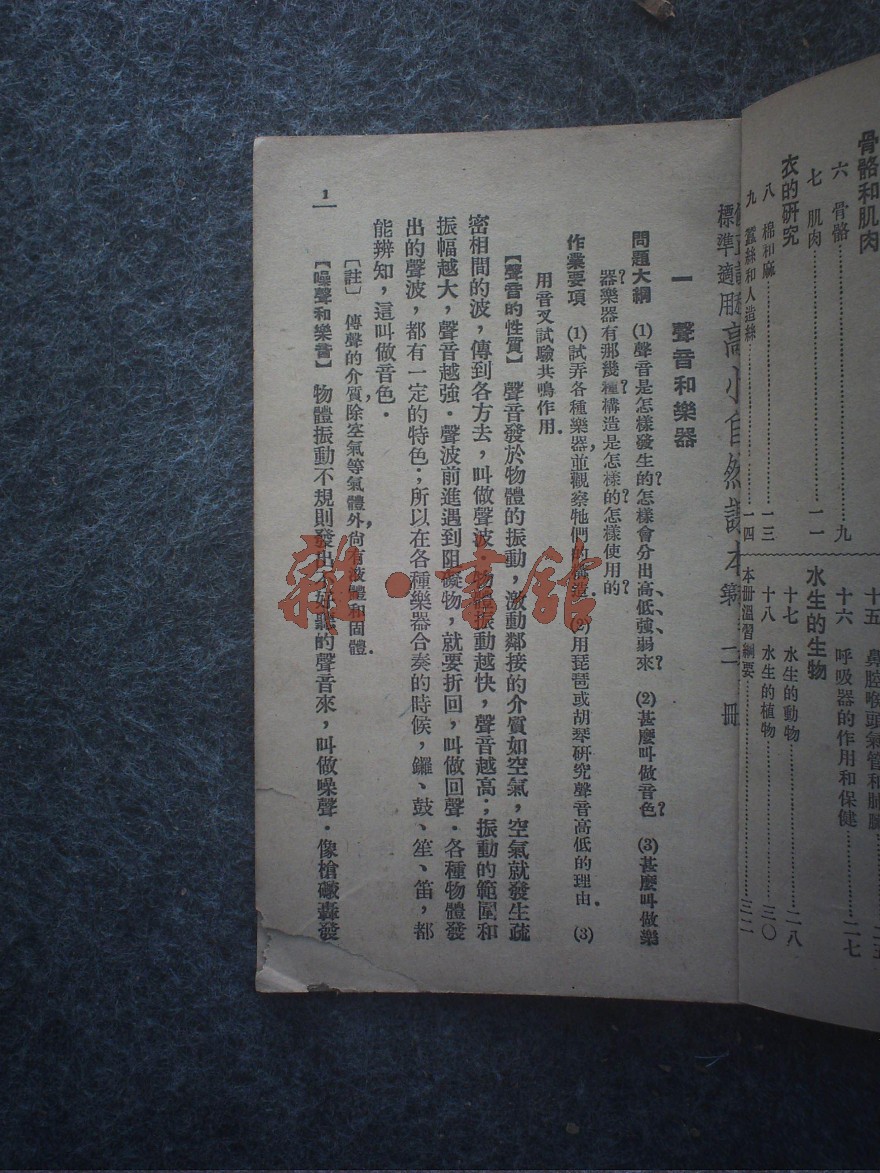 骨骼和肌肉
六 骨骼………九
七 肌肉………一一
衣的研究
八 棉和麻………一三
九 蠶絲和人造絲………一四
十五 鼻腔喉頭氣管和肺臟
十六 呼吸器的作用和保健………二七
水生的生物
十七 水生的動物………二八
十八 水生的植物………三〇
本冊溫習綱要………三二
標準適用 高小自然課本 第二冊
一 聲音和樂器
問題大綱 (1)聲音是怎樣發生的?怎樣會分出高、低、強、弱來? (2)甚麼叫做音色? (3)甚麼叫做樂
器?樂器有那幾種?構造是怎樣的?怎樣使用的?
作業要項 (1)試弄各種樂器,並觀察牠們的構造. (2)用琵琶或胡琴研究聲音高低的理由. (3)
用音叉試驗共鳴作用.
【聲音的性質】 聲音發於物體的振動,激動鄰接的介質如空氣,空氣就發生疏
密相間的波,傳到各方去,叫做聲波.物體振動越快,聲音越高;振動的範圍和
振幅越大,聲音越強.聲波前進遇到阻礙物,就要折回,叫做回聲.各種物體發
出的聲波,都有一定的特色;所以在各種樂器合奏的時候,鑼、鼓、笙、笛,都
能辨知,這叫做音色.
[註] 傳聲的介質,除空氣等氣體外,尙有液體和固體.
【噪聲和樂音】 物體振動不規則發出不好聽的聲音來,叫做噪聲.像槍礮轟發
1
雜·書館